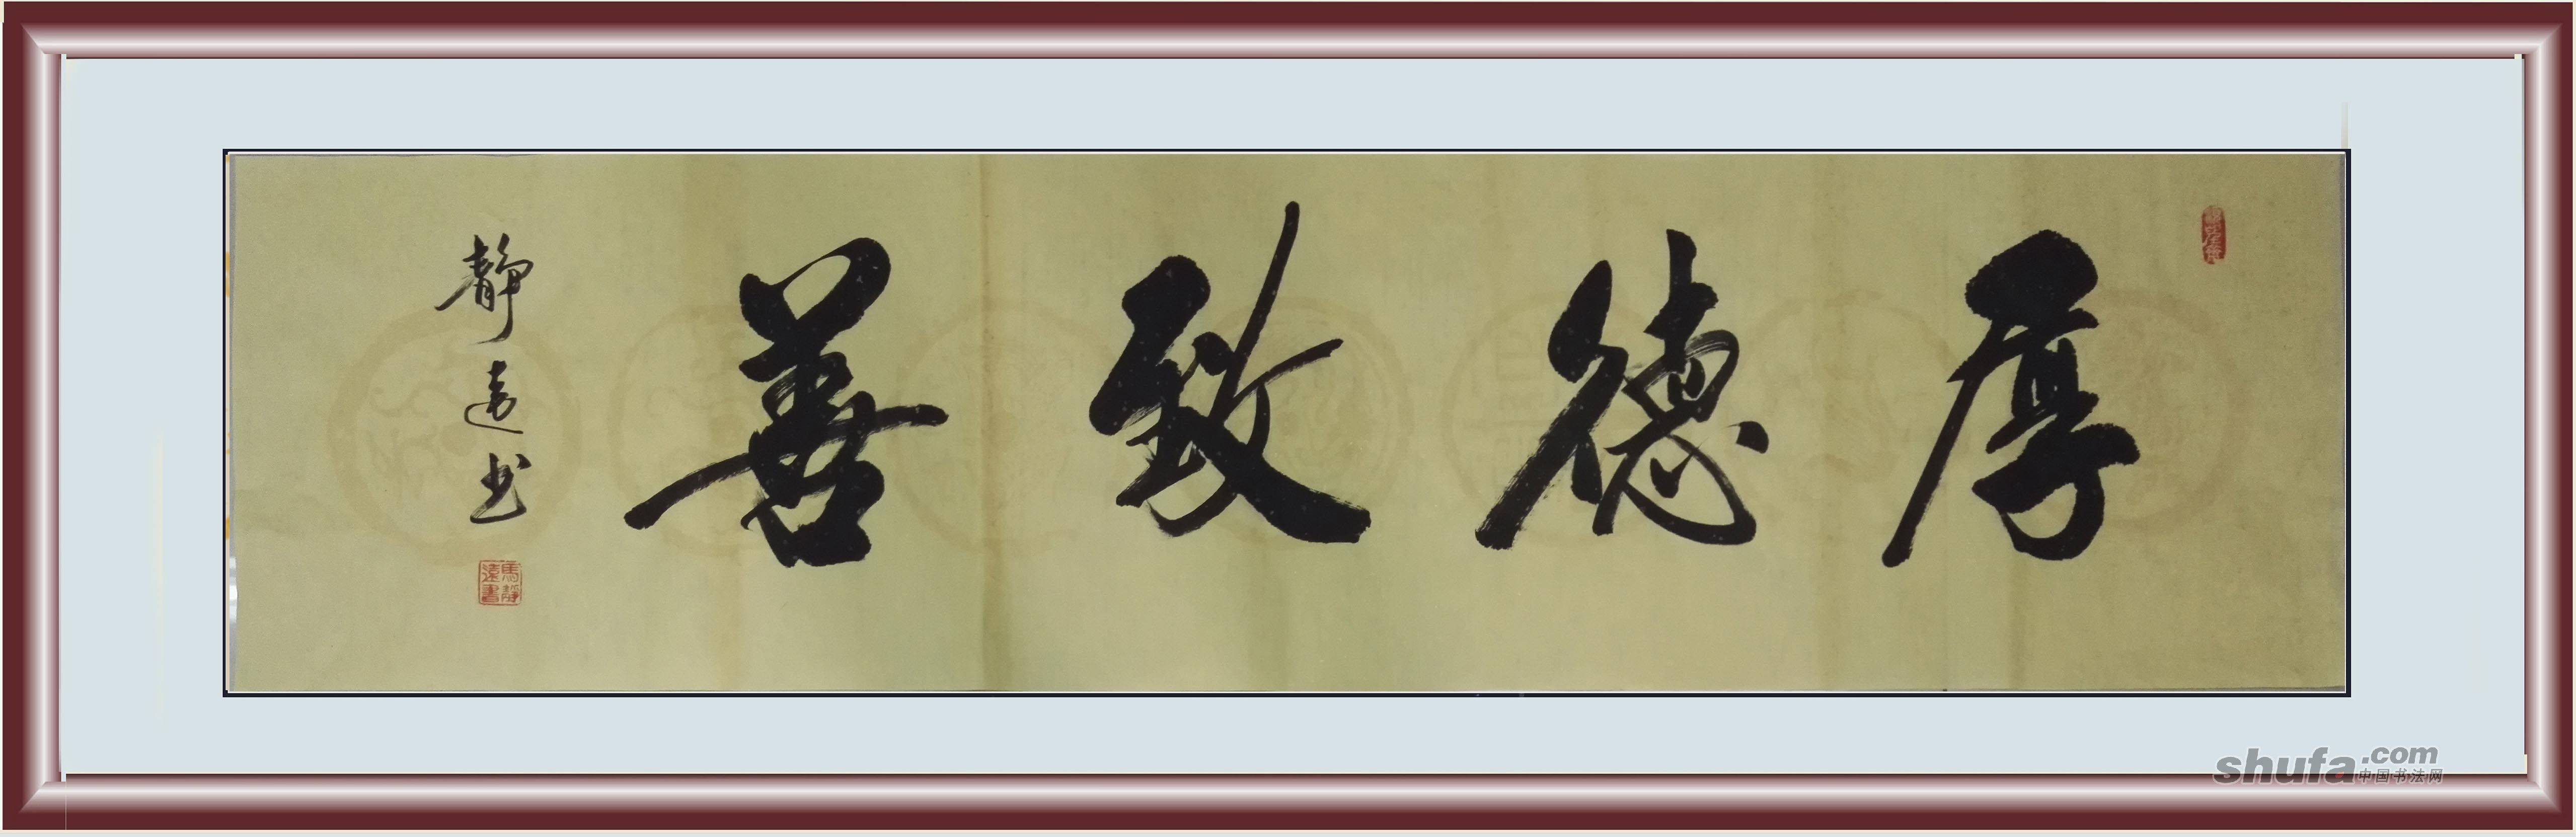 厚德致善
静远书
馬靜遠書
shufa.com
中国书法网